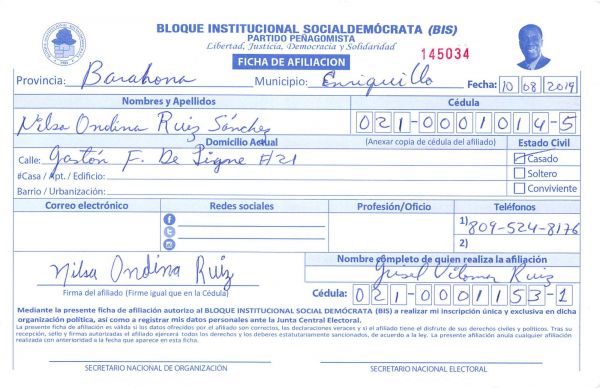 BLOQUE INSTITUCIONAL SOCIALDEMÓCRATA (BIS)
PARTIDO PEÑAGOMISTA
Libertad, Justicia, Democracia y Solidaridad
FICHA DE AFILIACION
145034
Provincia: Barahona Municipio: Enriquillo Fecha: 10 08 2019
Nombres y Apellidos Cédula
Nilsa Ondina Ruiz Sánchez 021-0001014-5
Domicilio Actual (Anexar copia de cédula del afiliado) Estado Civil
Calle: Gastón F. De Ligne #21 Casado
#Casa / Apt. / Edificio: Soltero
Barrio / Urbanización: Conviviente
Correo electrónico Redes sociales Profesión/Oficio Teléfonos
1) 809-524-8176
2)
Nilsa Ondina Ruiz
Nombre completo de quien realiza la afiliación
Ruiz
Firma del afiliado (Firme igual que en la Cédula) Cédula: 021-0001153-1
Mediante la presente ficha de afiliación autorizo al BLOQUE INSTITUCIONAL SOCIAL DEMÓCRATA (BIS) a realizar mi inscripción única y exclusiva en dicha
organización política, así como a registrar mis datos personales ante la Junta Central Electoral.
La presente ficha de afiliación es válida si los datos ofrecidos por el afiliado son correctos, las declaraciones veraces y si el afiliado tiene el disfrute de sus derechos civiles y políticos. Tras su
recepción, sello y firmas autorizadas el afiliado ejercerá todos los derechos y los deberes estatutariamente sancionados, de acuerdo a la ley. La presente afiliación anula cualquier afiliación
realizada con anterioridad a la fecha que aparece en esta ficha.
SECRETARIO NACIONAL DE ORGANIZACIÓN SECRETARIO NACIONAL ELECTORAL